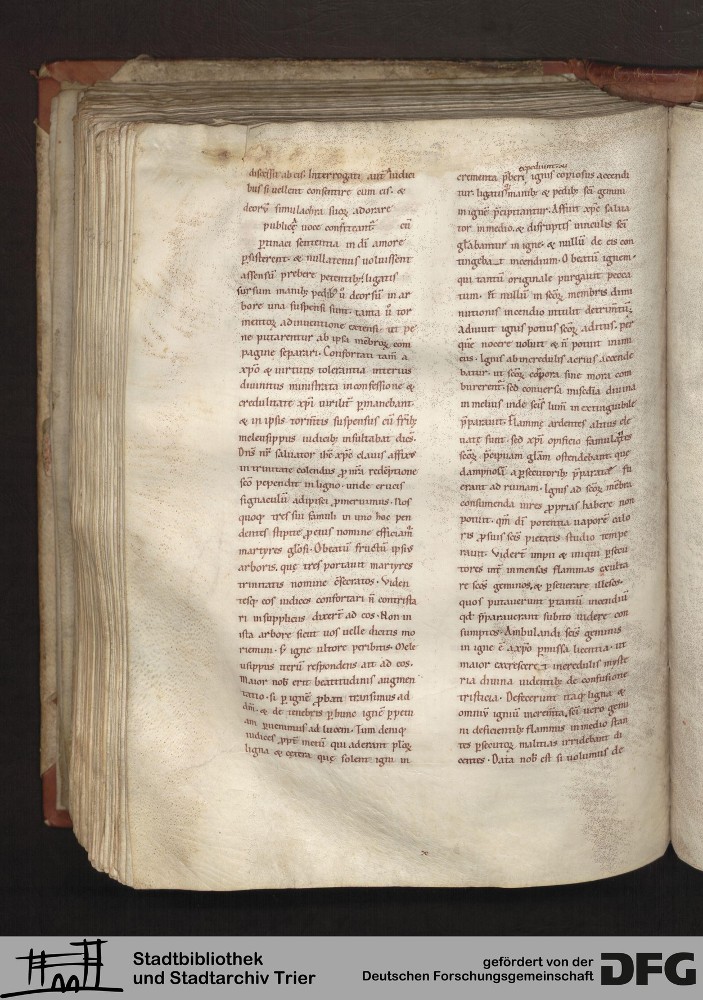 discessit ab eis. Interrogati aut iudici
bus si uellent consentire eum eis. &
deorū simulachra suoꝝ adorare
publicę uoce confiterent. cū
ꝑtinaci sententia in dī amore
ꝑsisterent. & nullatenus uoluissent
assensū prebere petentibȝ. ligatis
sursum manibȝ pedibȝ ū deorsū in ar
bore una suspensi sunt. tanta ū tor
mentoꝝ adinuentione extensi. ut pe
ne putarentur ab ipsa mēbroꝝ com
pagine separari. Confortati tam̄ a
xp̄o & uirtutis tolerantia interius
diuinitus ministrata in confessione &
credulitate xp̄i uirilit̄ ꝑmanebant.
& in ipsis torm̄tis suspensus cū fr̄ibȝ
meleusippus iudicibȝ insultabat dicēs.
Dn̄s nr̄ saluator ihc̄ xp̄c clauis affixꝰ
in trinitate colendus ꝓ nr̄a redēptione
sc̄o pependit in ligno. unde crucis
signaculū adipisci ꝓmeruimus. Nos
quoqȝ tres sui famuli in uno hoc pen
dentes stipite ꝓ eius nomine efficiam̄
martyres glōsi. O beatū fructū ipsiꝰ
arboris. quę tres portauit martyres
trinitatis nomine cōsecratos. Viden
tesqȝ eos iudices confortari n̄ contrista
ri in suppliciis dixert̄ ad eos. Non in
ista arbore sicut uos uelle dicitis mo
riemini. sȝ igne ultore peribitis. Mele
usippus iterū respondens ait ad eos.
Maior nob̄ erit beatitudinis augmen
tatio. si ꝑ ignē ꝓbati transimus ad
dm̄. & de tenebris ꝑ hunc ignē ꝑpetu
am ꝑuenimus ad lucem. Tum deniqȝ
iudices ꝓpt̄ metū qui aderant ꝑloꝝ
ligna & cetera quę solent igni in
expediuntur
crementa p̄beri. ignis copiosus accendi
tur. ligatisqȝ manibȝ & pedibȝ sc̄i gemini
in ignē p̄cipitantur. Affuit xp̄c salua
tor in medio. & disruptis uinculis sc̄i
gl̄abantur in igne. & nullū de eis con
tingebat incendium. O beatū ignem.
qui tantū originale purgauit pecca
tum. & nullū in sc̄oꝝ membris dimi
nutionis incendio intulit detrim̄tū.
Adiuuit ignis potius sc̄oꝝ aditus. ꝑ
que nocere uoluit & n̄ potuit inimi
cus. Ignis ab incredulis acrius accende
batur. ut sc̄oꝝ corpora sine mora com
burerent̄. sed conuersa misc̄dia diuina
in melius inde sc̄is lum̄ inextinguibile
p̄parauit. Flammę ardentes altius ele
uatę sunt. sed xp̄i opificio famulantes
sc̄oꝝ p̄cipuam glām ostendebant. quę
dampnosȩ a ꝑsecutoribȝ p̄paratȩ fu
erant ad ruinam. Ignis ad sc̄oꝝ mēbra
consumenda uires ꝓprias habere non
potuit. qm̄ dī potentia uaporē calo
ris ꝓ suis sc̄is pietatis studio tempe
rauit. Vidert̄ impii & iniqui ꝑsecu
tores int̄ inmensas flammas exulta
re sc̄os geminos. & ꝑseuerare illesos.
quos putauerunt ꝑ tantū incendiū
qd̄ p̄parauerant subito uidere con
sumptos. Ambulandi sc̄is geminis
in igne ē a xp̄o ꝑmissa licentia. ut
maior excresceret incredulis myste
ria diuina uidentibȝ de confusione
tristicia. Defecerunt itaqȝ ligna &
omniū igniū increm̄ta. sc̄i uero gemi
ni deficientibȝ flammis in medio stan
tes ꝑsecutoꝝ malitias irridebant di
centes. Data nob̄ est si uolumus de
Stadtbibliothek
und Stadtarchiv Trier
gefördert von der
Deutschen Forschungsgemeinschaft
DFG